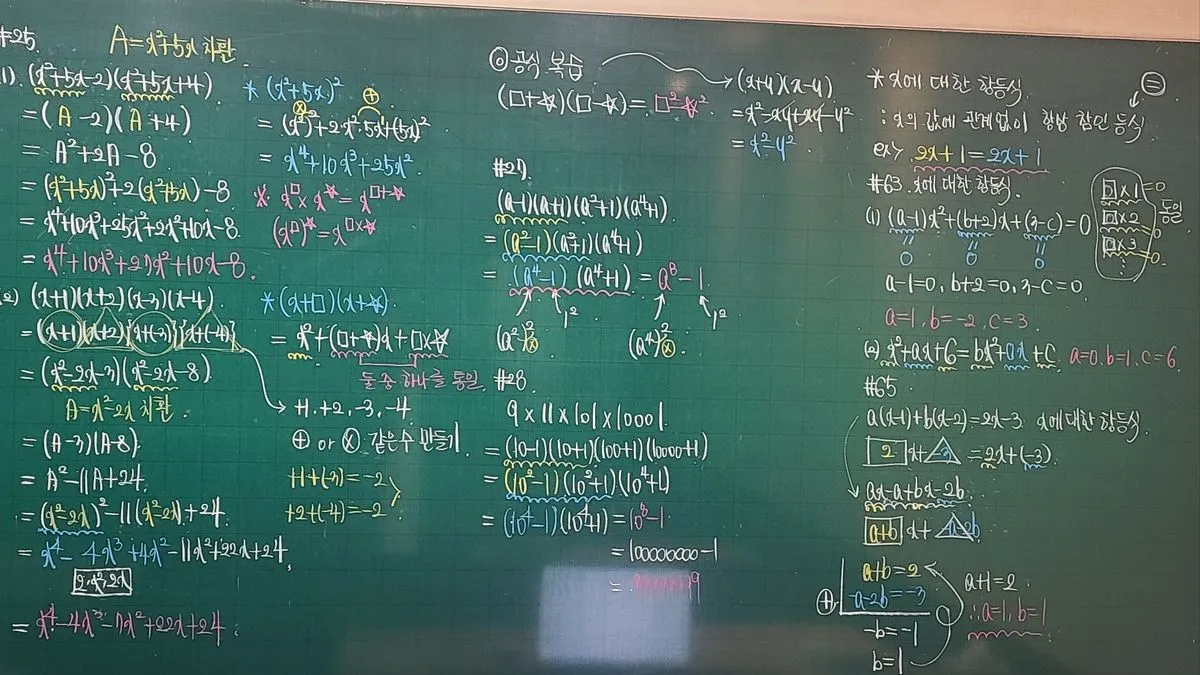 #25. A=x²+5x 치환
1). (x²+5x-2)(x²+5x+4)
=(A-2)(A+4)
= A²+2A-8
=(x²+5x)²+2(x²+5x)-8
= x⁴+10x³+25x²+2x²+10x-8.
= x⁴+10x³+27x²+10x-8.
(2) (x+1)(x+2)(x-3)(x-4)
= (x+1)(x+2){x+(-3)}{x+(-4)}
=(x²-2x-3)(x²-2x-8)
A=x²-2x 치환
=(A-3)(A-8)
= A²-11A+24.
=(x²-2x)²-11(x²-2x)+24.
= x⁴-4x³+4x²-11x²+22x+24.
2·x²·2x
= x⁴-4x³-7x²+22x+24.
* (x²+5x)²
= (x²)²+2x²·5x+(5x)²
= x⁴+10x³+25x²
* x□ × x☆ = x□+☆
(x□)☆ = x□×☆
*(x+□)(x+☆)
= x²+(□+☆)x+□×☆
둘 중 하나를 통일.
→ +1. +2, -3, -4.
⊕ or ⊗ 같은수 만들기.
+1+(-3)=-2
+2+(-4)=-2
◎ 공식 복습
(□+☆)(□-☆)=□²-☆²
(x+y)(x-y)
=x²-xy+xy-y²
= x²-y²
#27.
(a-1)(a+1)(a²+1)(a⁴+1)
= (a²-1)(a²+1)(a⁴+1)
= (a⁴-1)(a⁴+1)=a⁸-1
(a²)² ⊗ 1² (a⁴)² ⊗ 1²
#28.
9×11×101×10001.
=(10-1)(10+1)(100+1)(10000+1)
=(10²-1)(10²+1)(10⁴+1)
= (10⁴-1)(10⁴+1)=10⁸-1
= 100000000-1
* x에 대한 항등식.
: x의 값에 관계없이 항상 참인 등식
ex> 2x+1=2x+1
#63. x에 대한 항등식.
(1) (a-1)x²+(b+2)x+(3-c)=0
0 0 0
□×1=0
□×2=0
□×3=0
⋮
동일
a-1=0, b+2=0, 3-c=0.
a=1, b=-2, c=3.
(2). x²+ax+6=bx²+0x+c. a=0. b=1, c=6.
#65
a(x-1)+b(x-2)=2x-3. x에대한 항등식.
2x+-3=2x+(-3).
ax-a+bx-2b.
a+b x+ -a-2b
a+b=2
⊕ -a-2b=-3
-b=-1
b=1
a+1=2
∴a=1, b=1